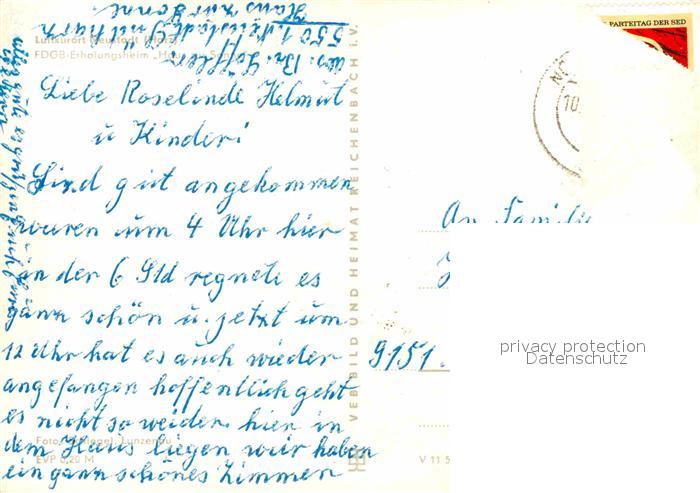 Luftkurort Neustadt (Harz)
FDGB-Erholungsheim
Liebe Roselinde Helmut
u Kinder!
Sind gut angekommen
waren um 4 Uhr hier
in der 6 Std regnete es
ganz schön u. jetzt um
12 Uhr hat es auch wieder
angefangen hoffentlich geht
es nicht so weider. hier in
dem Haus liegen wir haben
ein ganz schönes Zimmer
Lunzenau
EVP 0,20 M
VEB BILD UND HEIMAT REICHENBACH i. V.
V 11 5
Abs: Br. Löffler
5501 Neustadt Südharz
Haus zur Sonne
PARTEITAG DER SED
10.
An Familie
9151.
privacy protection
Datenschutz